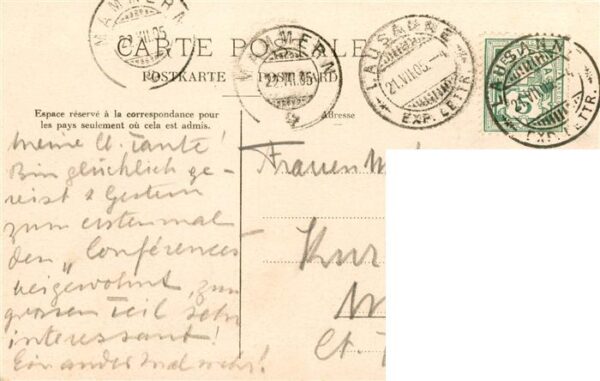 MAMMERN
22.VII.05
CARTE POSTALE
MAMMERN
22.VII.05
LAUSANNE
21.VII.05.
EXP. LETTR.
LAUSANNE
EXP. LETTR.
5
POSTKARTE
Espace réservé à la correspondance pour
les pays seulement où cela est admis.
Adresse
Meine Tante!
Bin glücklich ge-
reist & Gestern
zum erstenmal
den „Conférences"
beigewohnt, zum
grossen Teil sehr
interessant!
Ein andermal mehr!
Frauen
Kur
Ct.